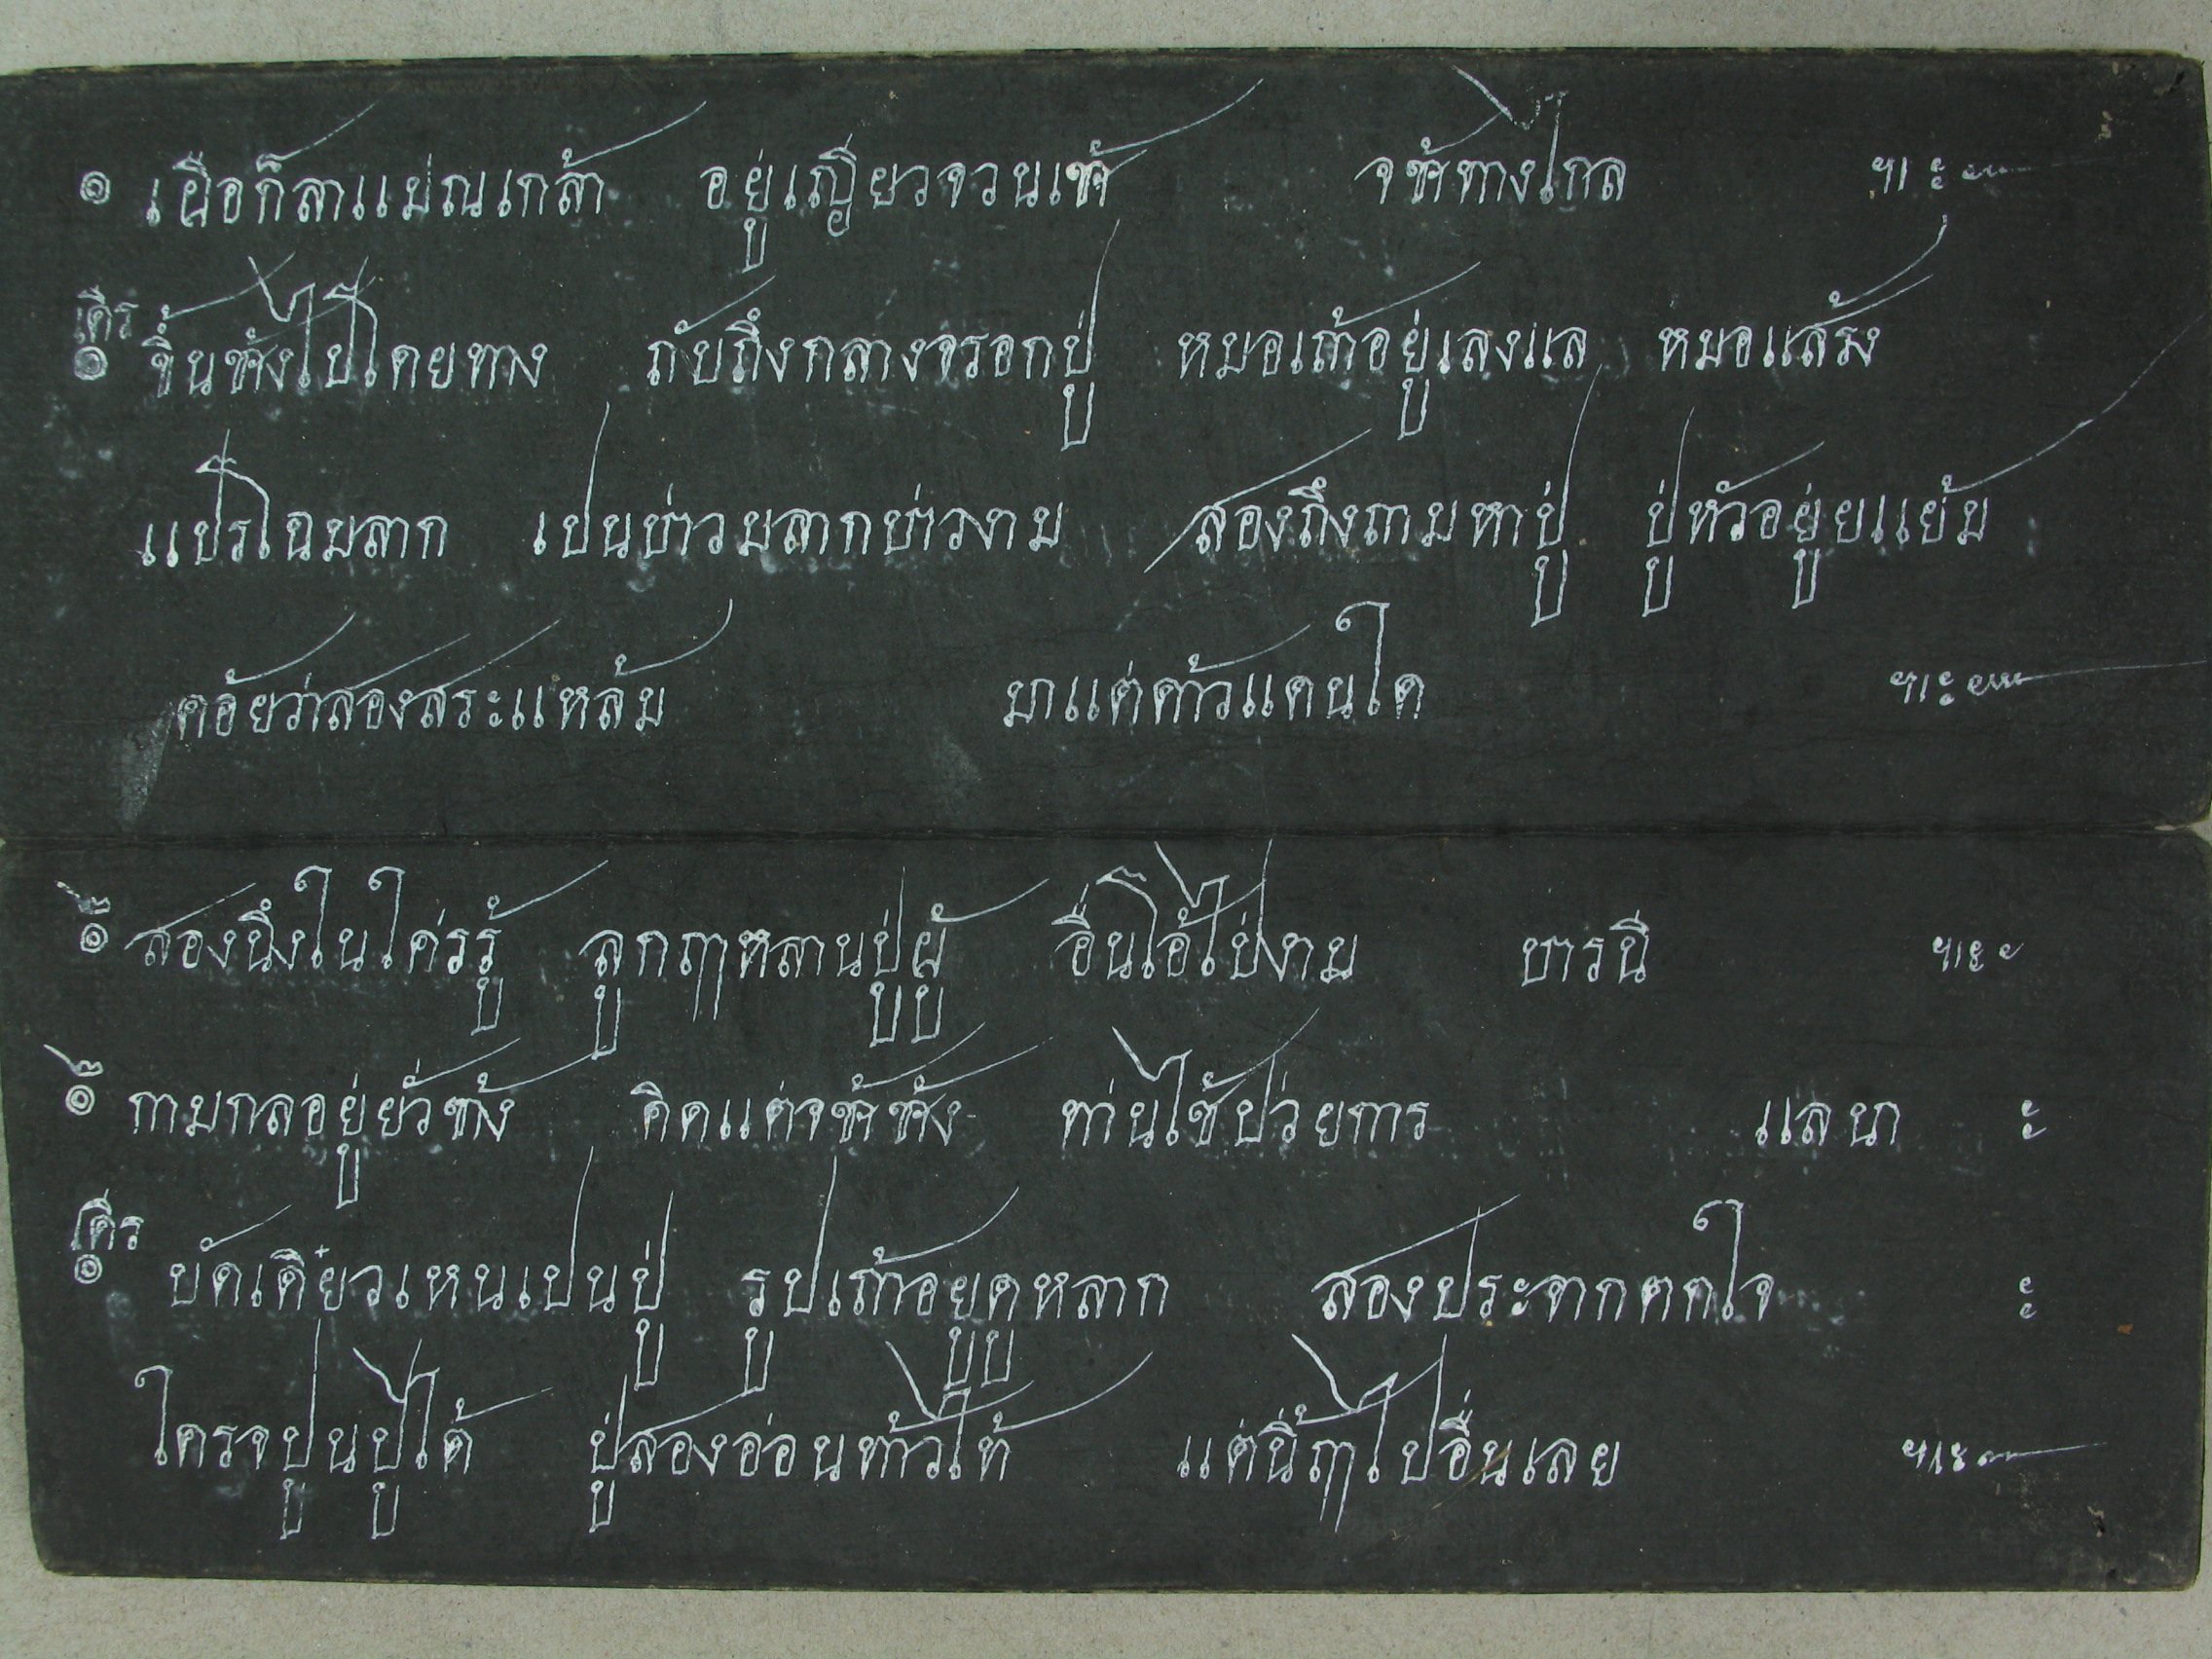 ๏ เผือก็ลาแม่ณเกล้า อยู่เญียวจวนเช้า จช้าทางไกล ฯะ
เดิร
๏ ขึ้นช้างไปโดยทาง ถับถึงกลางจรอกปู่ หมอเถ้าอยู่เลงแล หมอแสร้ง
แปรโฉมลาก เปนบ่าวมลากบ่าวงาม สองถึงถามหาปู่ ปู่หัวอยู่ยแย้ม
ถอ้ยว่าสองสระแหล้ม มาแต่ด้าวแดนใด ฯะ
๏ สองนึ่งในใคร่รู้ ลูกฤๅหลานปู่ผู้ อื่นโอ้ไป่งาม บารนี ฯะ
๏ ถามกลอยู่ยั่วช้าง คิดแต่จช้าช้าง ท่านใช้ป่วยการ แลนา ะ
เดิร
๏ บัดเดี๋ยวเหนเปนปู่ รูปเถ้าอยูดูหลาก สองประจากตกใจ ะ
ใครจปูนปู่ได้ ปู่สองอ่อนท้าวไท้ แต่นี้ฤๅไปอื่นเลย ฯะ